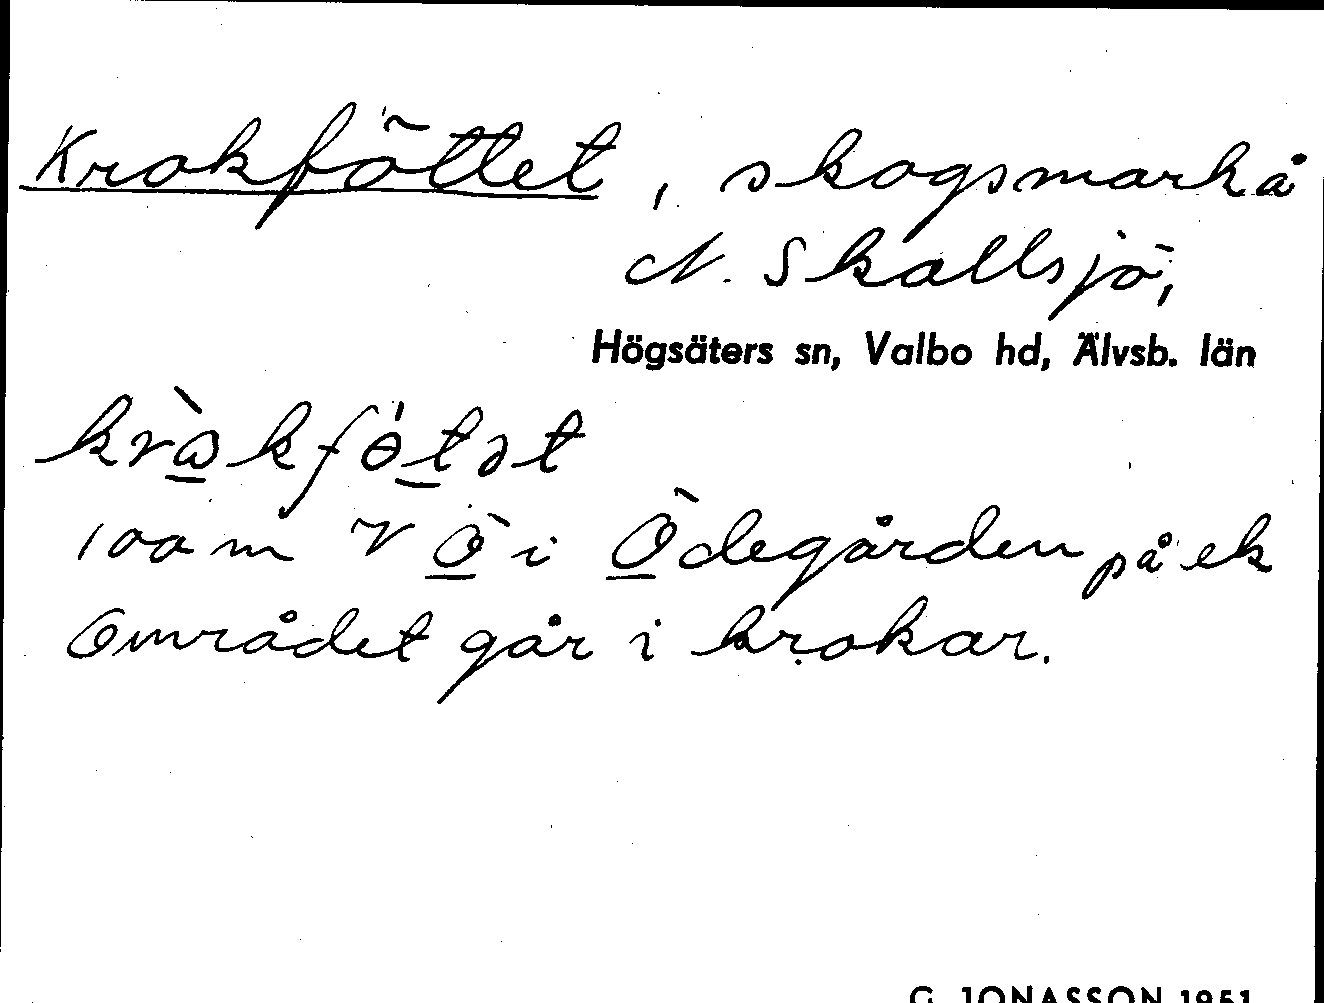 Krokföttet, skogsmark å
N. Skallsjö,
Högsäters sn, Valbo hd, Älvsb. län
100 m V Ö i Ödegården på ek
Området går i krokar.
G. JONASSON 1951